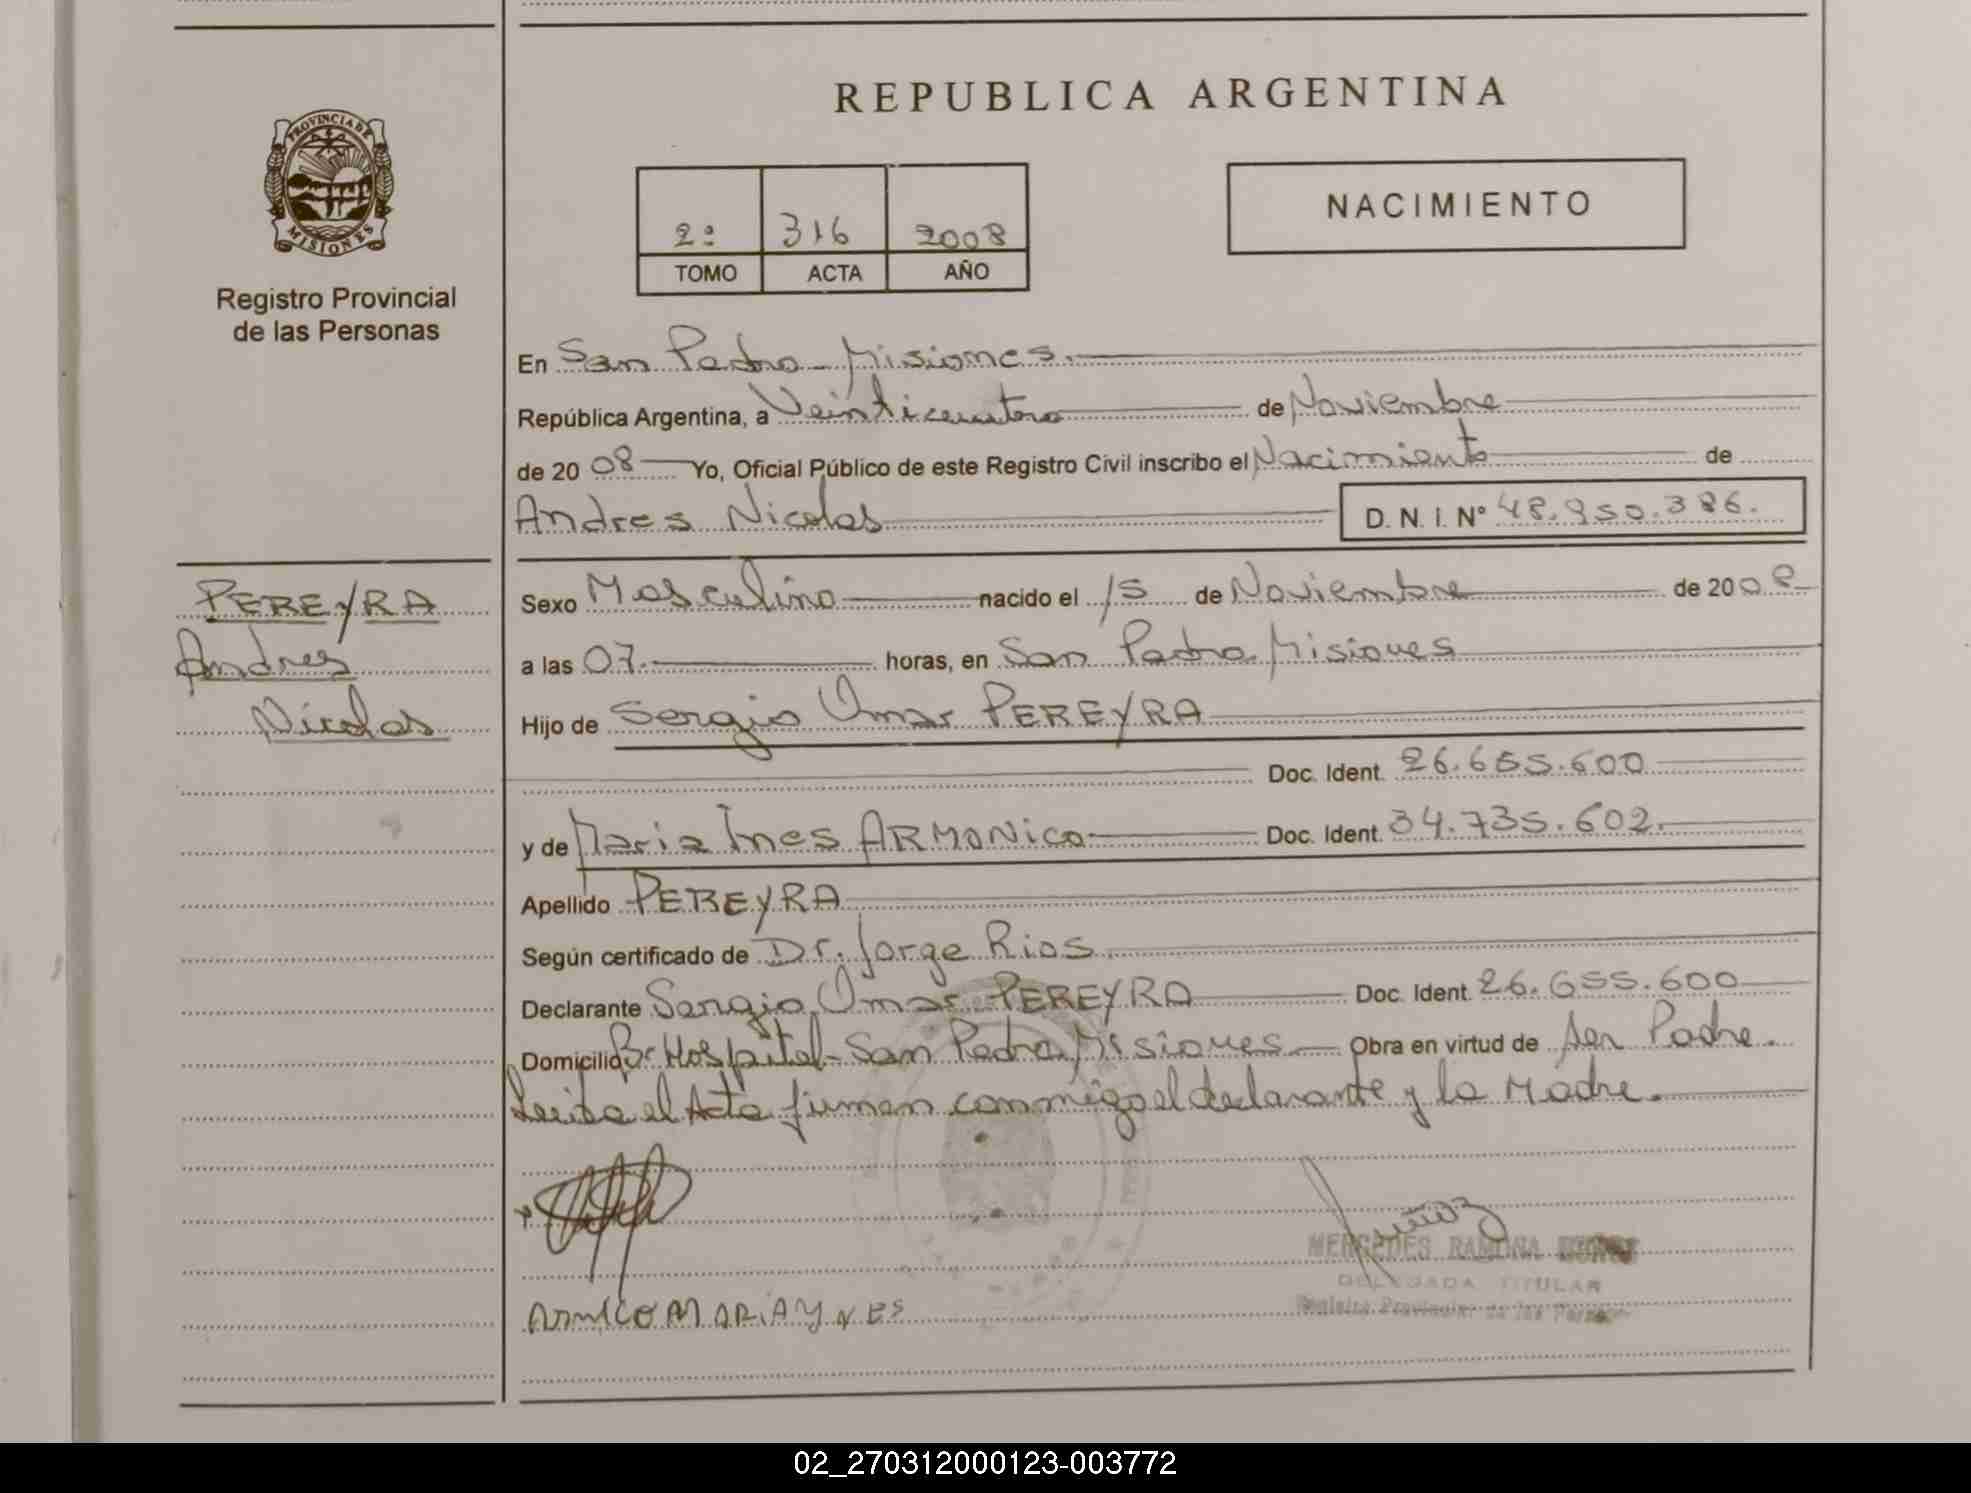 REPUBLICA ARGENTINA
PROVINCIA DE
MISIONES
Registro Provincial
de las Personas
2º 316 2008
TOMO ACTA AÑO
NACIMIENTO
En San Pedro - Misiones.
República Argentina, a Veinticuatro de Noviembre
de 2008 Yo, Oficial Público de este Registro Civil inscribo el Nacimiento de
Andres Nicolas D. N. I. Nº 48.950.386.
PEREYRA
Andres
Nicolas
Sexo Masculino nacido el 15 de Noviembre de 2008
a las 07. horas, en San Pedro Misiones
Hijo de Sergio Omar PEREYRA
Doc. Ident. 26.655.600
y de Maria Ines ARMONICO Doc. Ident. 34.735.602.
Apellido PEREYRA
Según certificado de Dr. Jorge Rios.
Declarante Sergio Omar PEREYRA Doc. Ident. 26.655.600
Domicilio Bº Hospital - San Pedro Misiones Obra en virtud de ser Padre.
Leida el Acta firman conmigo el declarante y la Madre.
MERCEDES RAMONA
DELEGADA TITULAR
Registro Provincial de las Personas
02_270312000123-003772